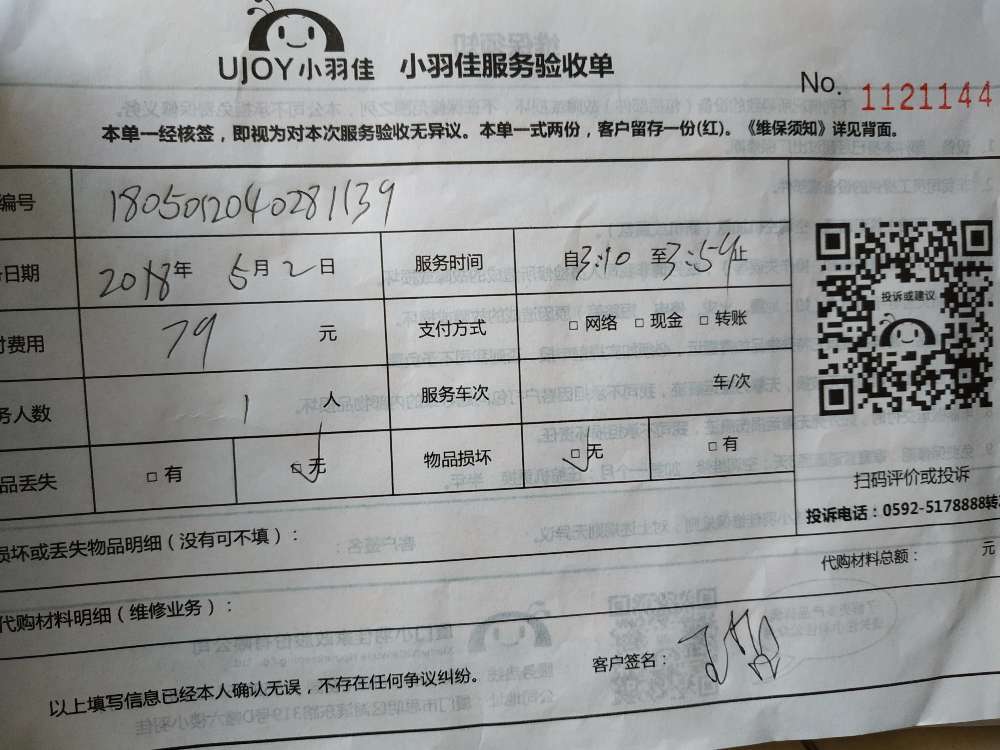 UJOY小羽佳 小羽佳服务验收单
No. 1121144
本单一经核签，即视为对本次服务验收无异议。本单一式两份，客户留存一份(红)。《维保须知》详见背面。
编号 1805012040281139
日期 2018年 5月2日 服务时间 自3:10 至3:54止
付费用 79 元 支付方式 □ 网络 □ 现金 □ 转账
务人数 1 人 服务车次 车/次
品丢失 □ 有 □ 无 物品损坏 □ 无 □ 有
投诉或建议
扫码评价或投诉
投诉电话：0592-5178888转
损坏或丢失物品明细（没有可不填）：
代购材料明细（维修业务）：
代购材料总额： 元
以上填写信息已经本人确认无误，不存在任何争议纠纷。
客户签名：